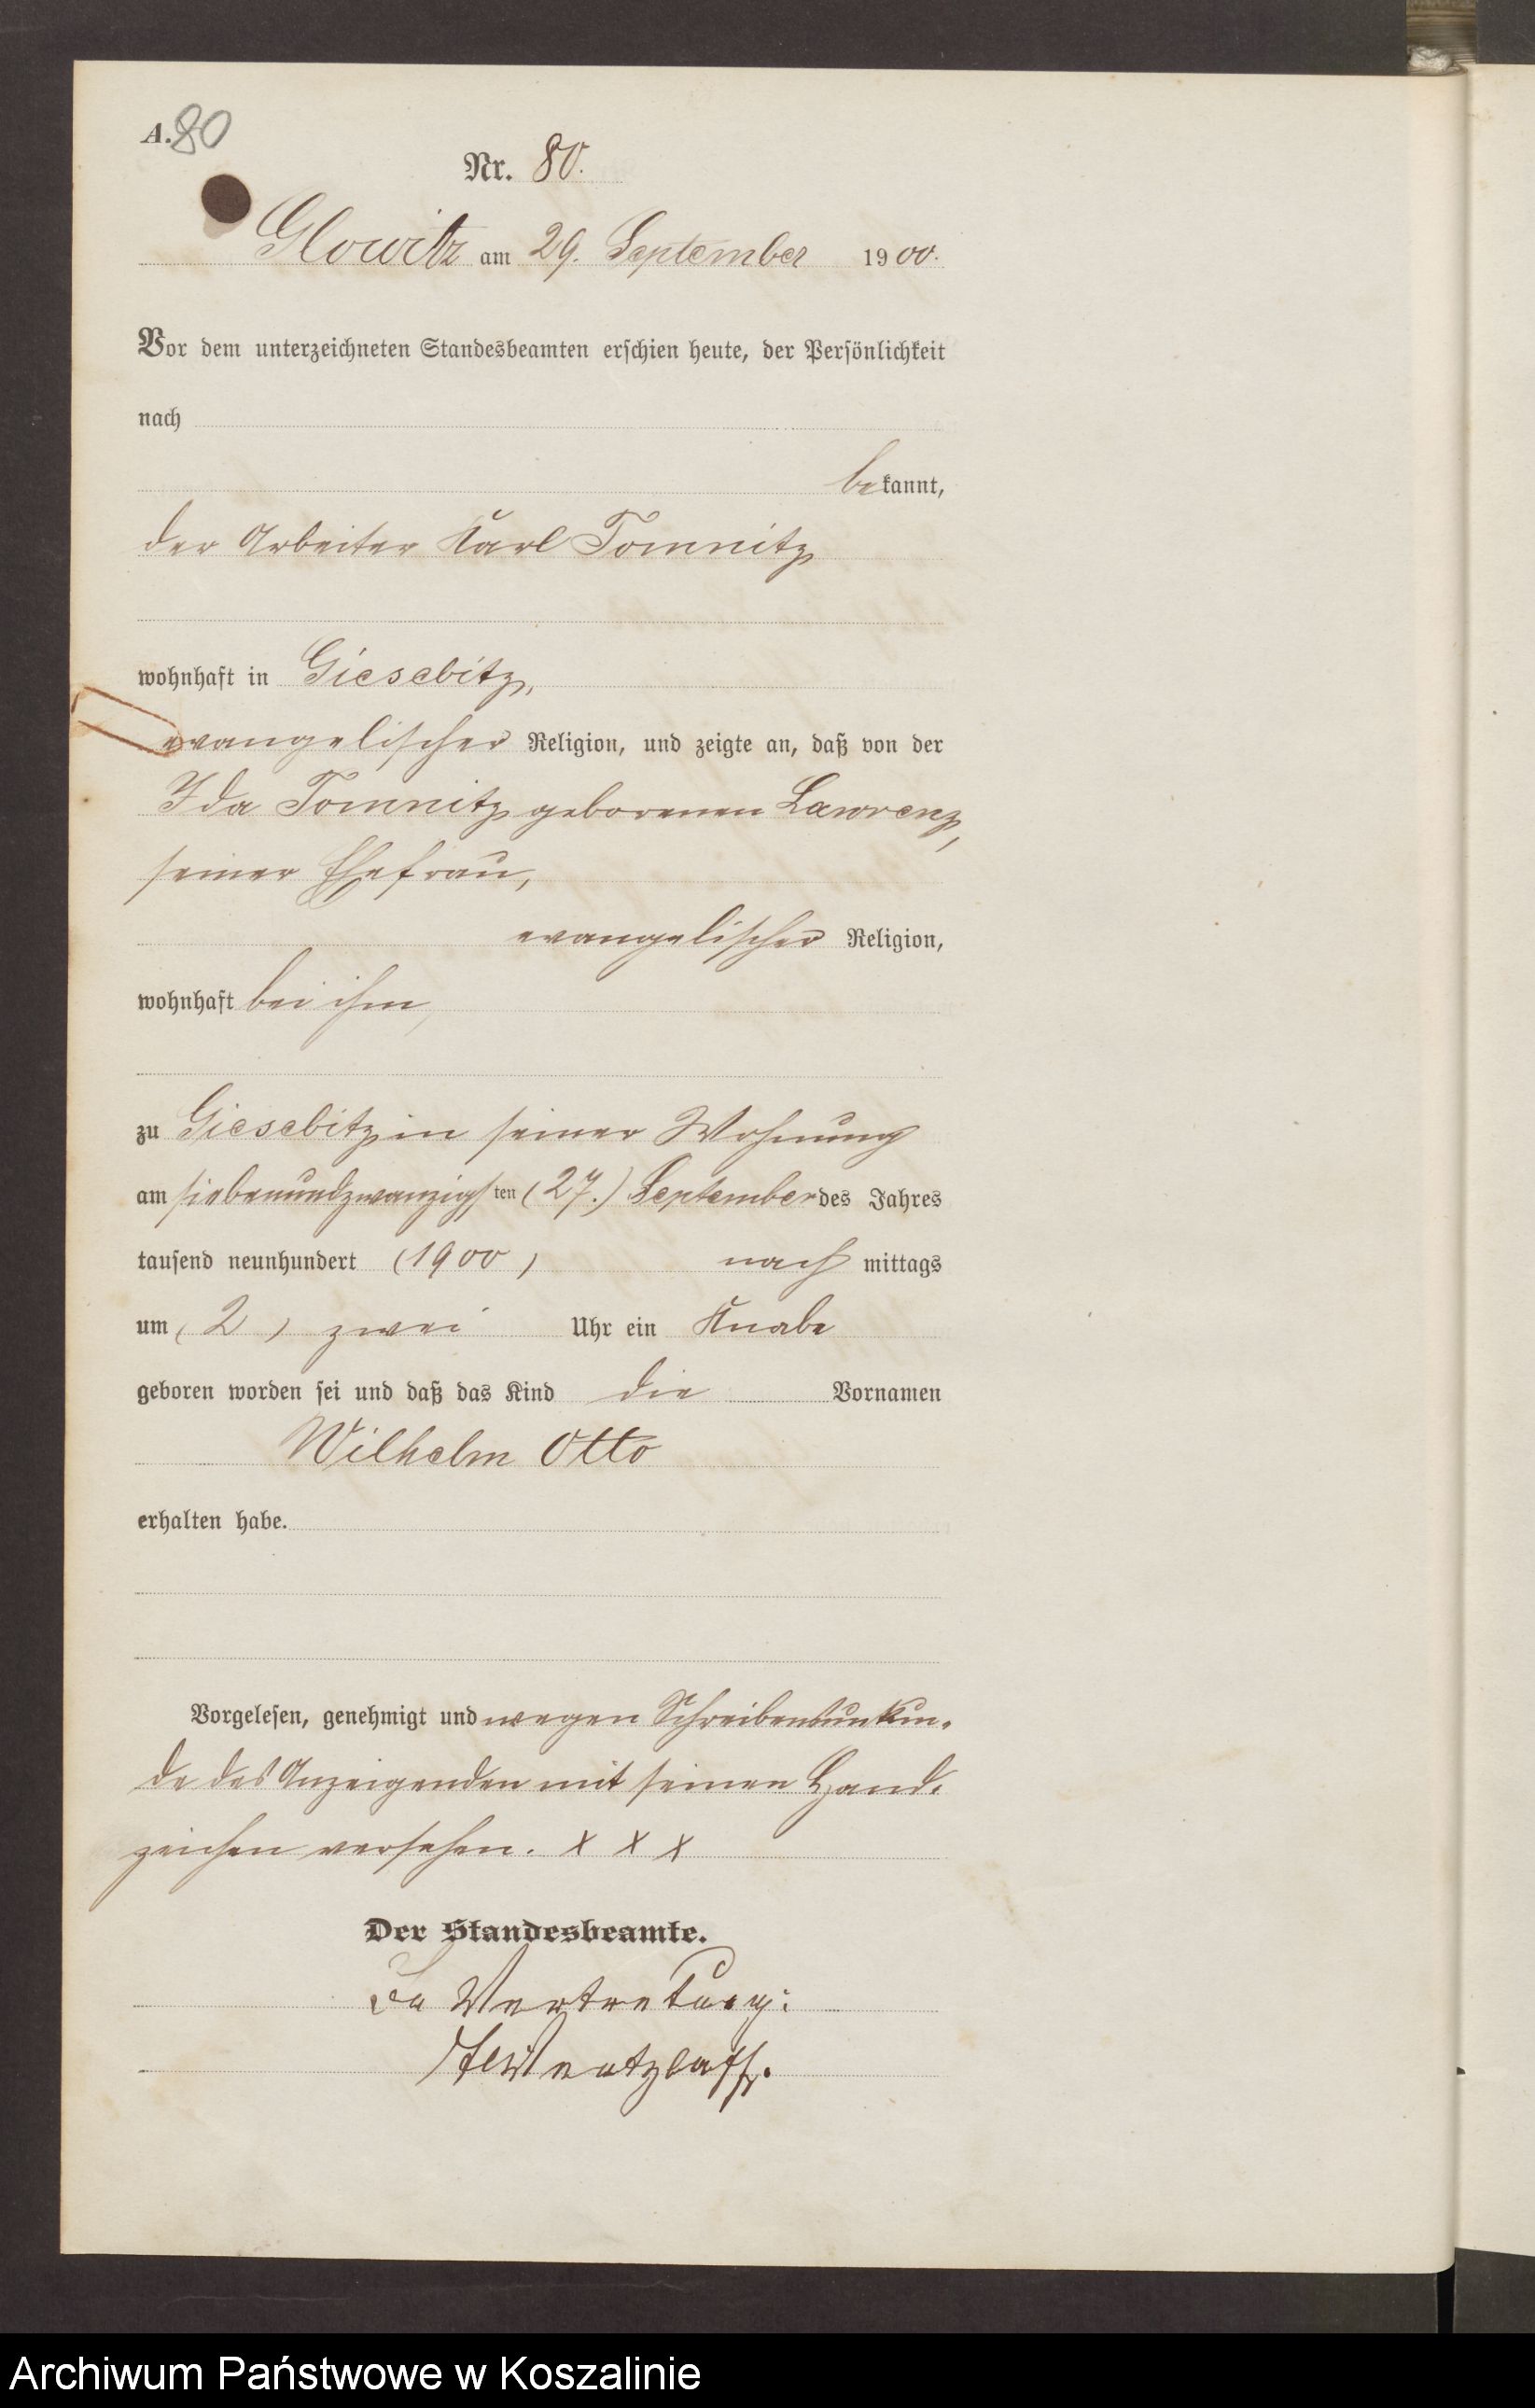 A. 80
Nr. 80.
Glowitz am 29. September 1900.
Vor dem unterzeichneten Standesbeamten erschien heute, der Persönlichkeit
nach
bekannt,
der Arbeiter Karl Tomnitz
wohnhaft in Giesebitz,
evangelischer Religion, und zeigte an, daß von der
Ida Tomnitz geborenen Lawrenz,
seiner Ehefrau,
evangelischer Religion,
wohnhaft bei ihm,
zu Giesebitz in seiner Wohnung
am siebenundzwanzigsten (27.) September des Jahres
tausend neunhundert (1900) nachmittags
um (2) zwei Uhr ein Knabe
geboren worden sei und daß das Kind die Vornamen
Wilhelm Otto
erhalten habe.
Vorgelesen, genehmigt und wegen Schreibensunkun-
de des Anzeigenden mit seinen Hand-
zeichen versehen. X X X
Der Standesbeamte.
In Vertretung:
Wentzlaff.
Archiwum Państwowe w Koszalinie